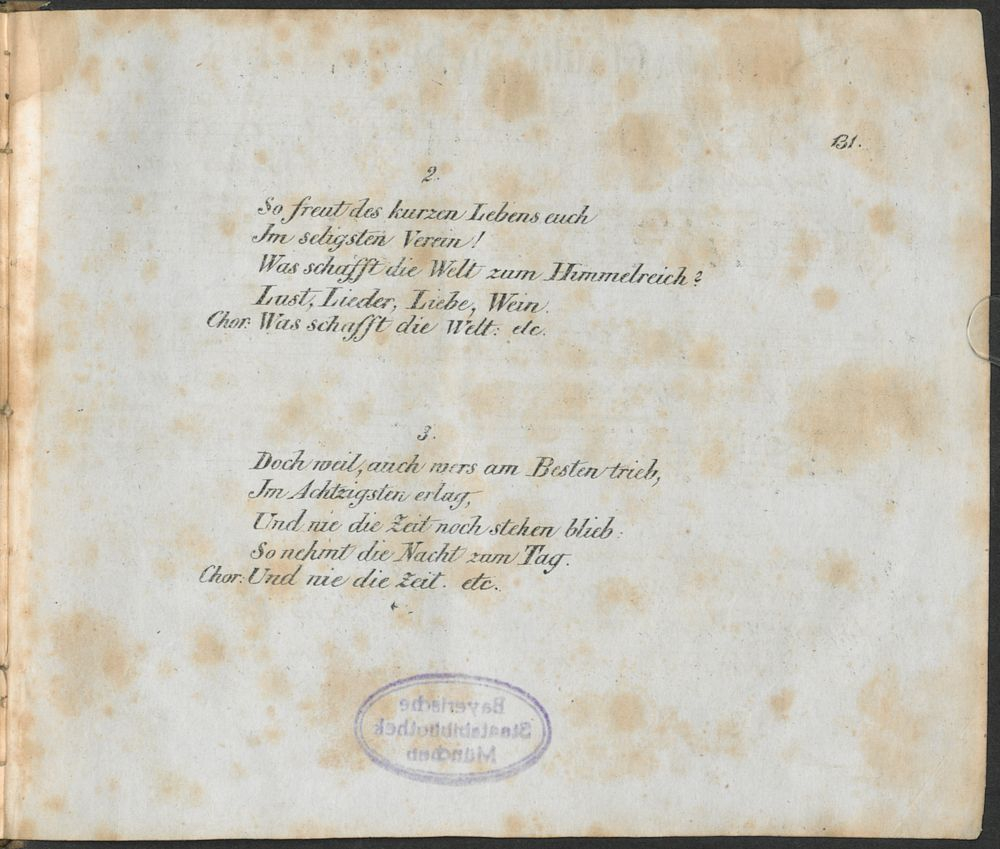 131.
2.
So freut des kurzen Lebens euch
Im seligsten Verein!
Was schafft die Welt zum Himmelreich?
Lust, Lieder, Liebe, Wein.
Chor: Was schafft die Welt: etc.
3.
Doch weil, auch wers am Besten trieb,
Im Achtzigsten erlag,
Und nie die Zeit noch stehen blieb:
So nehmt die Nacht zum Tag.
Chor: Und nie die Zeit. etc.
Bayerische
Staatsbibliothek
München